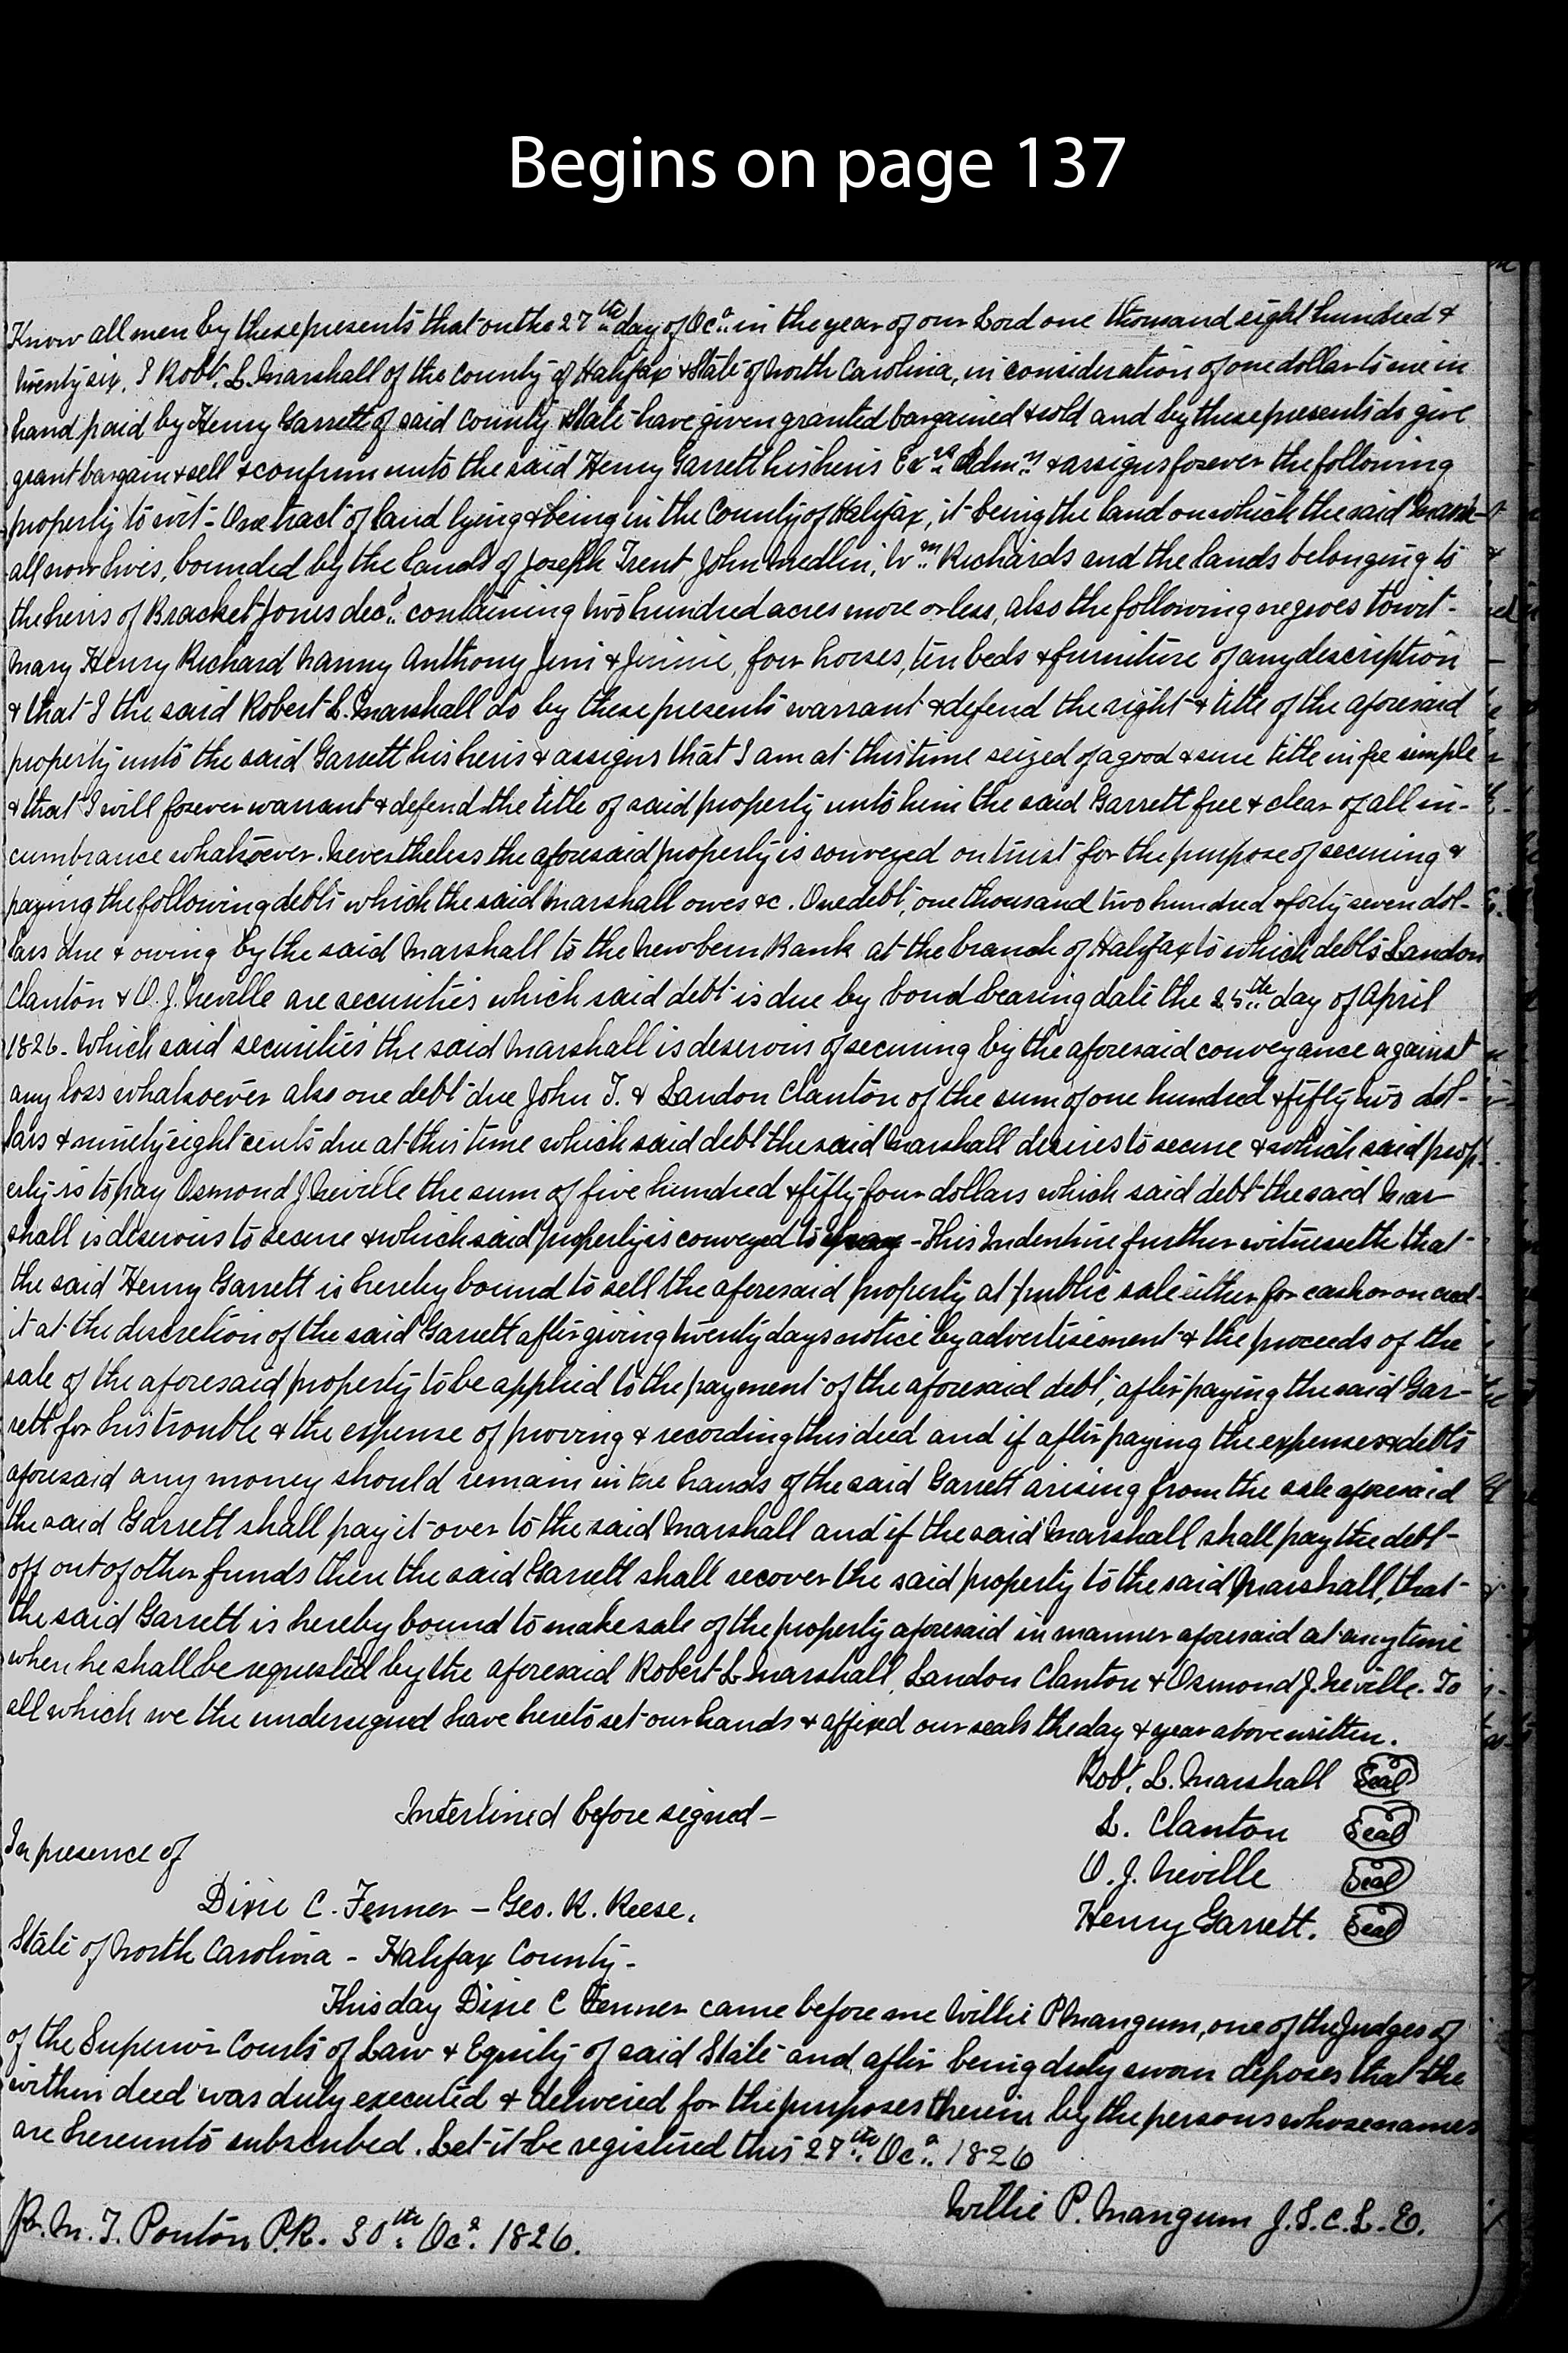 Begins on page 137
Know all men by these presents that on the 27th day of Oca. in the year of our Lord one thousand eight hundred &
twenty six, I Robt. L. Marshall of the county of Halifax & State of North Carolina, in consideration of one dollar to me in
hand paid by Henry Garrett of said county & State have given granted bargained & sold and by these presents do give
grant bargain & sell & confirm unto the said Henry Garrett his heirs Exrs. Admrs. & assigns forever the following
property to wit - One tract of land lying & being in the County of Halifax, it being the land on which the said Marsh-
all now lives, bounded by the lands of Joseph Trent, John Medlin, Wm. Richards and the lands belonging to
the heirs of Bracket Jones decd. containing two hundred acres more or less, also the following negroes to wit -
Mary Henry Richard Nanny Anthony Jim & Jinnie, four horses, ten beds & furniture of any description
& that I the said Robert L. Marshall do by these presents warrant & defend the right & title of the aforesaid
property unto the said Garrett his heirs & assigns that I am at this time seized of a good & sure title in fee simple
& that I will forever warrant & defend the title of said property unto him the said Garrett free & clear of all in-
cumbrance whatsoever. Nevertheless the aforesaid property is conveyed on trust for the purpose of securing &
paying the following debts which the said Marshall owes &c. One debt, one thousand two hundred & forty seven dol-
lars due & owing by the said Marshall to the Newbern Bank at the branch of Halifax to which debts Landon
Clanton & O. J. Neville are securities which said debt is due by bond bearing date the 25th day of April
1826. Which said securities the said Marshall is deserous of securing by the aforesaid conveyance against
any loss whatsoever also one debt due John T. & Landon Clanton of the sum of one hundred & fifty two dol-
lars & ninety eight cents due at this time which said debt the said Marshall desires to secure & which said prop-
erty is to pay Osmond J. Neville the sum of five hundred & fifty four dollars which said debt the said Mar
shall is deserous to secure & which said property is conveyed to - This Indenture further witnesseth that
the said Henry Garrett is hereby bound to sell the aforesaid property at public sale either for cash or on cred-
it at the discretion of the said Garrett after giving twenty days notice by advertisement & the proceeds of the
sale of the aforesaid property to be applied to the payment of the aforesaid debt, after paying the said Gar-
rett for his trouble & the expense of proving & recording this deed and if after paying the expenses & debts
aforesaid any money should remain in the hands of the said Garrett arising from the sale aforesaid
the said Garrett shall pay it over to the said Marshall and if the said Marshall shall pay the debt
off out of other funds then the said Garrett shall recover the said property to the said Marshall, that
the said Garrett is hereby bound to make sale of the property aforesaid in manner aforesaid at any time
when he shall be requested by the aforesaid Robert L. Marshall, Landon Clanton & Osmond J. Neville. To
all which we the undersigned have hereto set our hands & affixed our seals the day & year above written.
Robt. L. Marshall Seal
Interlined before signed -
L. Clanton Seal
In presence of
O. J. Neville Seal
Dixie C. Fenner - Geo. R. Reese.
Henry Garrett. Seal
State of North Carolina - Halifax County -
This day Dixie C Fenner came before me Willie P Mangum, one of the Judges of
of the Superior Courts of Law & Equity of said State and after being duly sworn deposes that the
within deed was duly executed & delivered for the purposes therein by the persons whose names
are hereunto subscribed. Let it be registered this 27th Oca. 1826
Willie P. Mangum J.S.C.L.E.
Pr. M. T. Ponton P.R. 30th Oca. 1826.